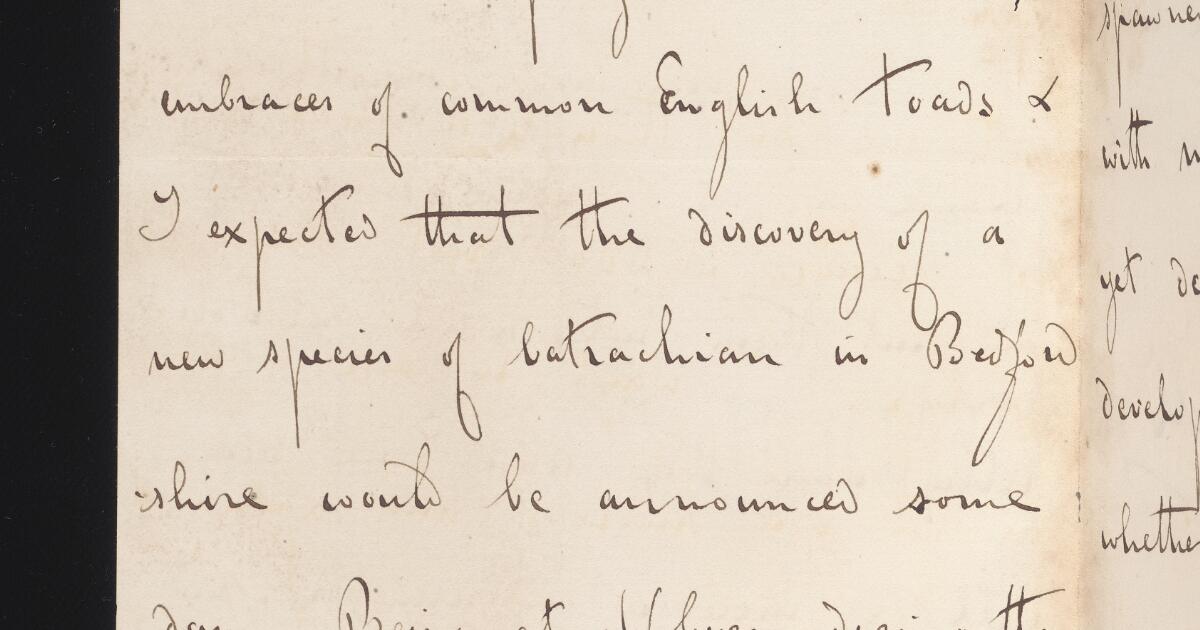 embraces of common English Toads &
I expected that the discovery of a
new species of batrachian in Bedford
-shire would be announced some
day. Being at
with
yet
whether